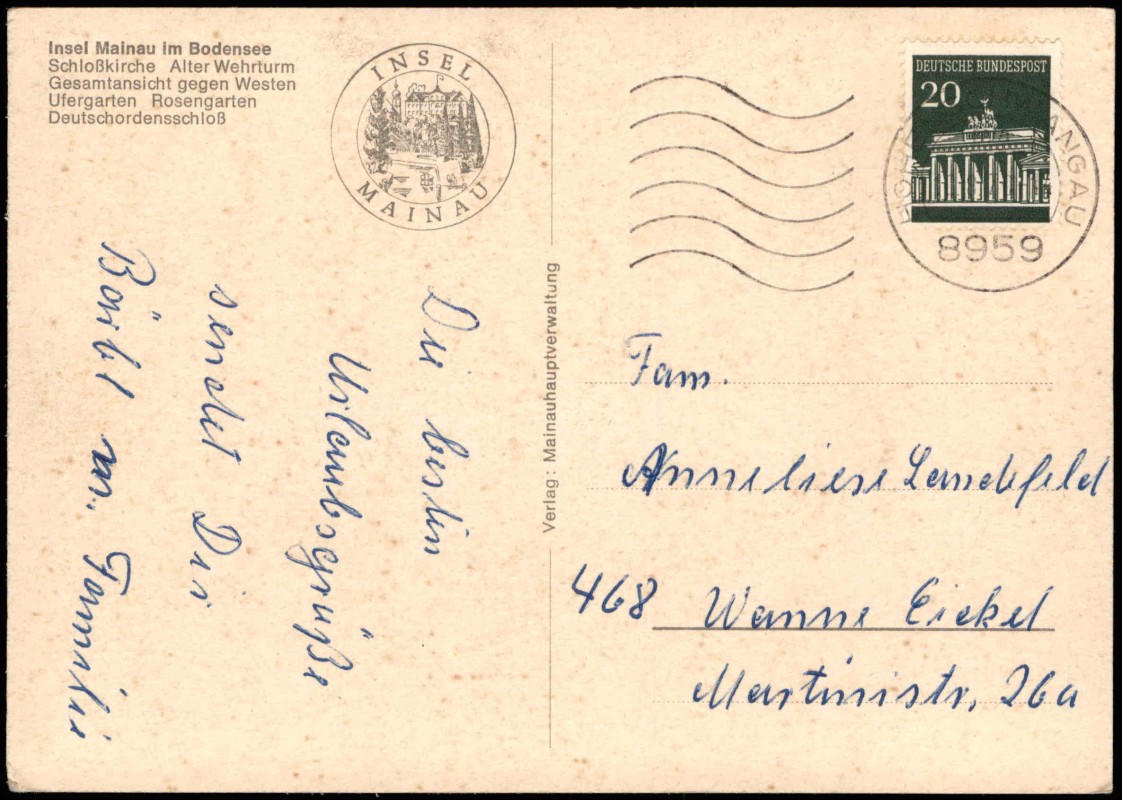 Insel Mainau im Bodensee
Schloßkirche Alter Wehrturm
Gesamtansicht gegen Westen
Ufergarten Rosengarten
Deutschordensschloß
INSEL
MAINAU
DEUTSCHE BUNDESPOST
20
ANGAU
8959
Verlag: Mainauhauptverwaltung
Die besten
Urlaubsgrüße
sendet Dir
Bärbl u. Familie
Fam.
Anneliese Landefeld
468 Wanne Eickel
Martinistr, 26a